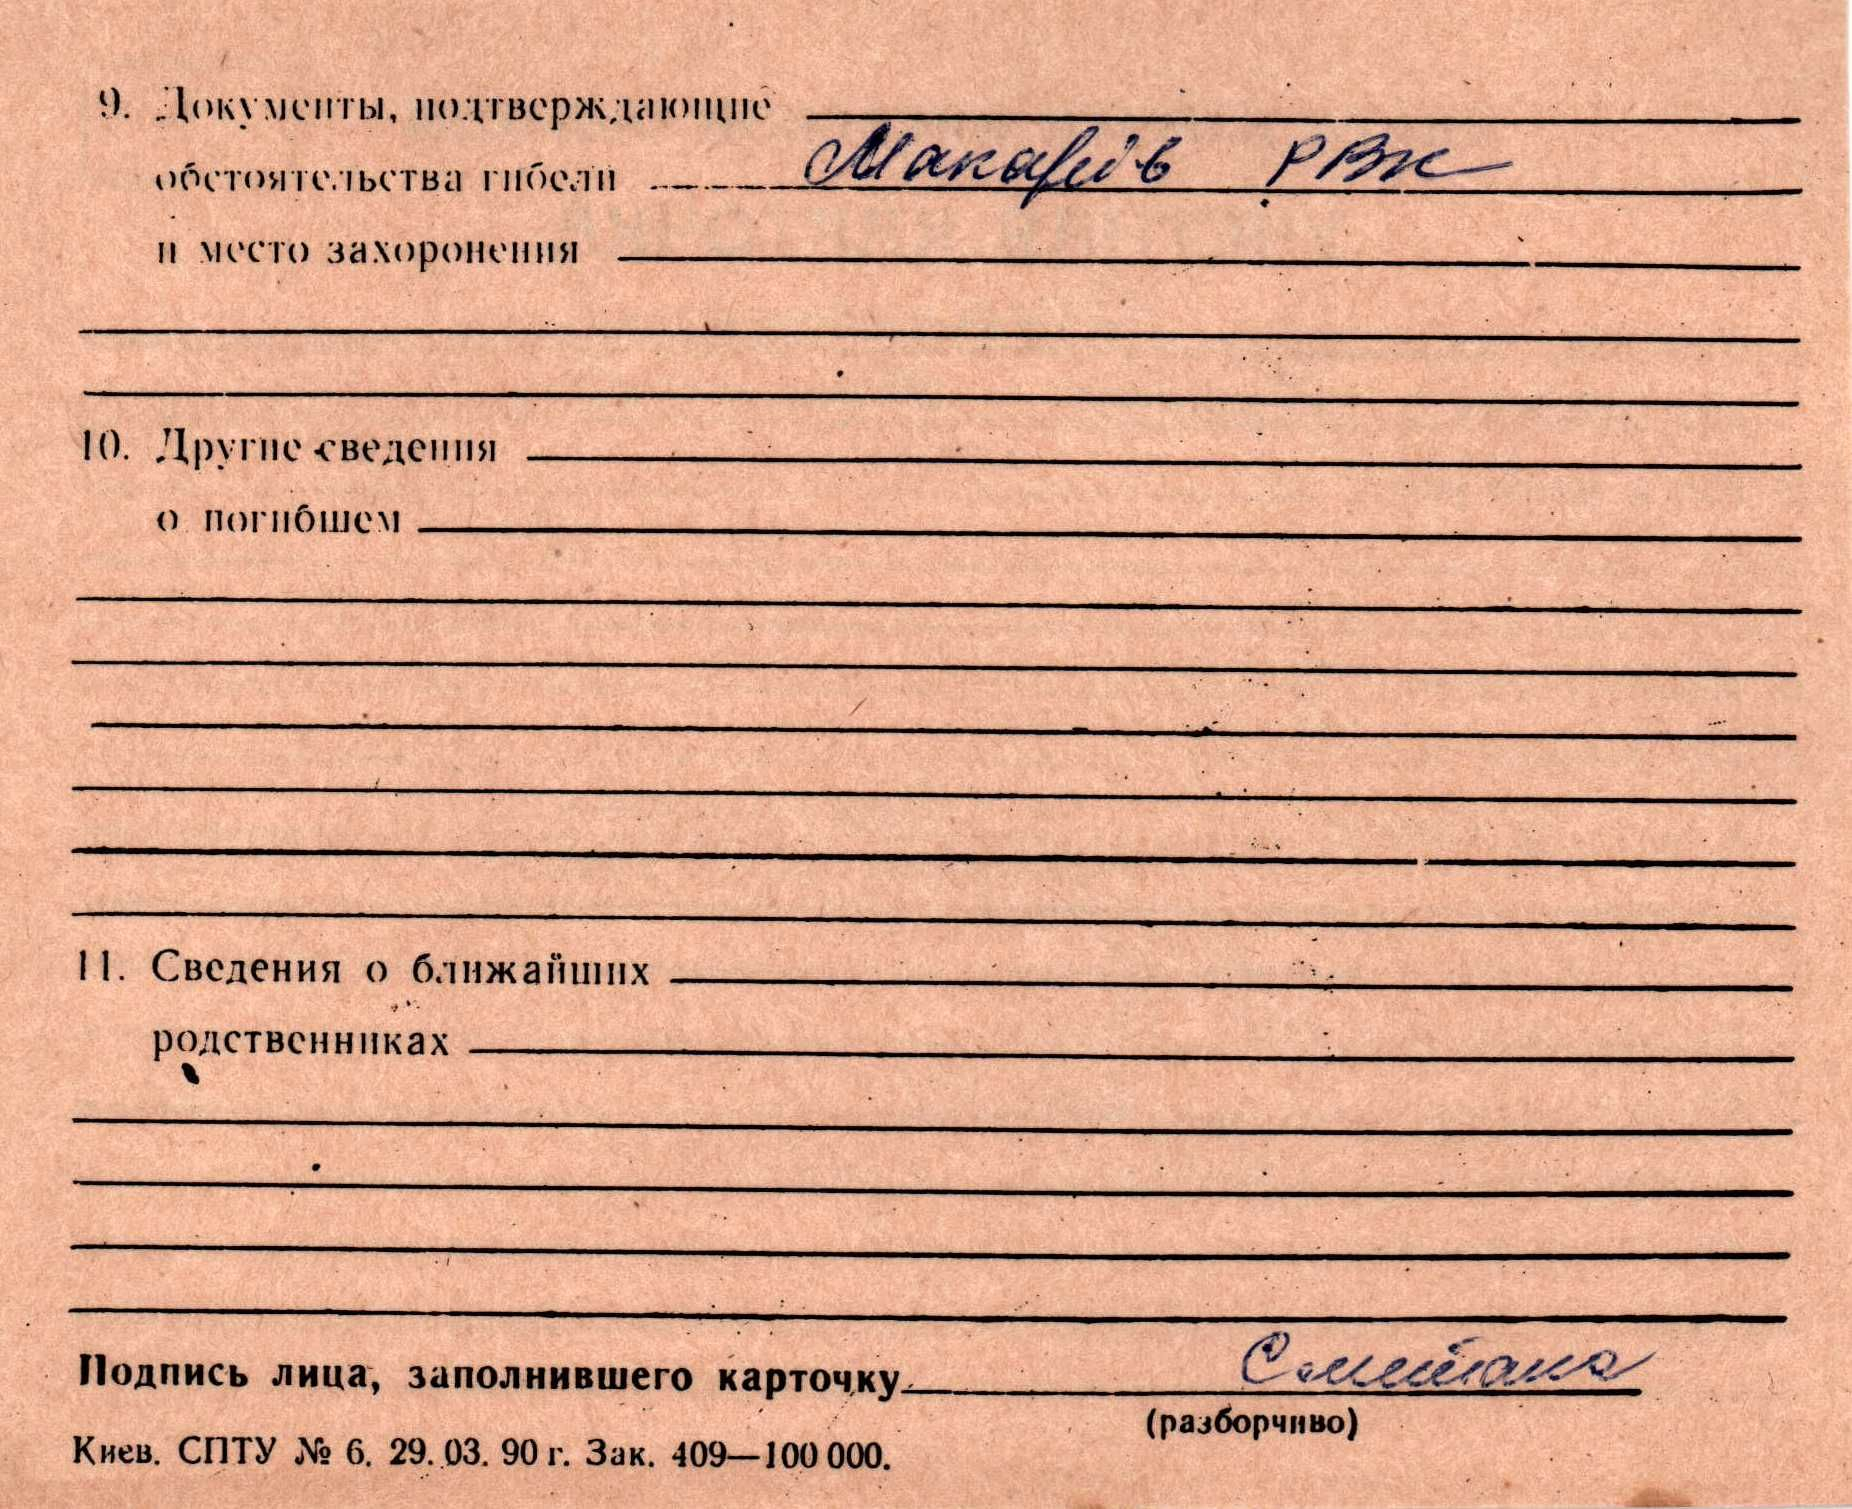 9. Документы, подтверждающие
обстоятельства гибели Макарів РВК
и место захоронения
10. Другие сведения
о погибшем
11. Сведения о ближайших
родственниках
Подпись лица, заполнившего карточку
(разборчиво)
Киев. СПТУ № 6. 29. 03. 90 г. Зак. 409—100 000.